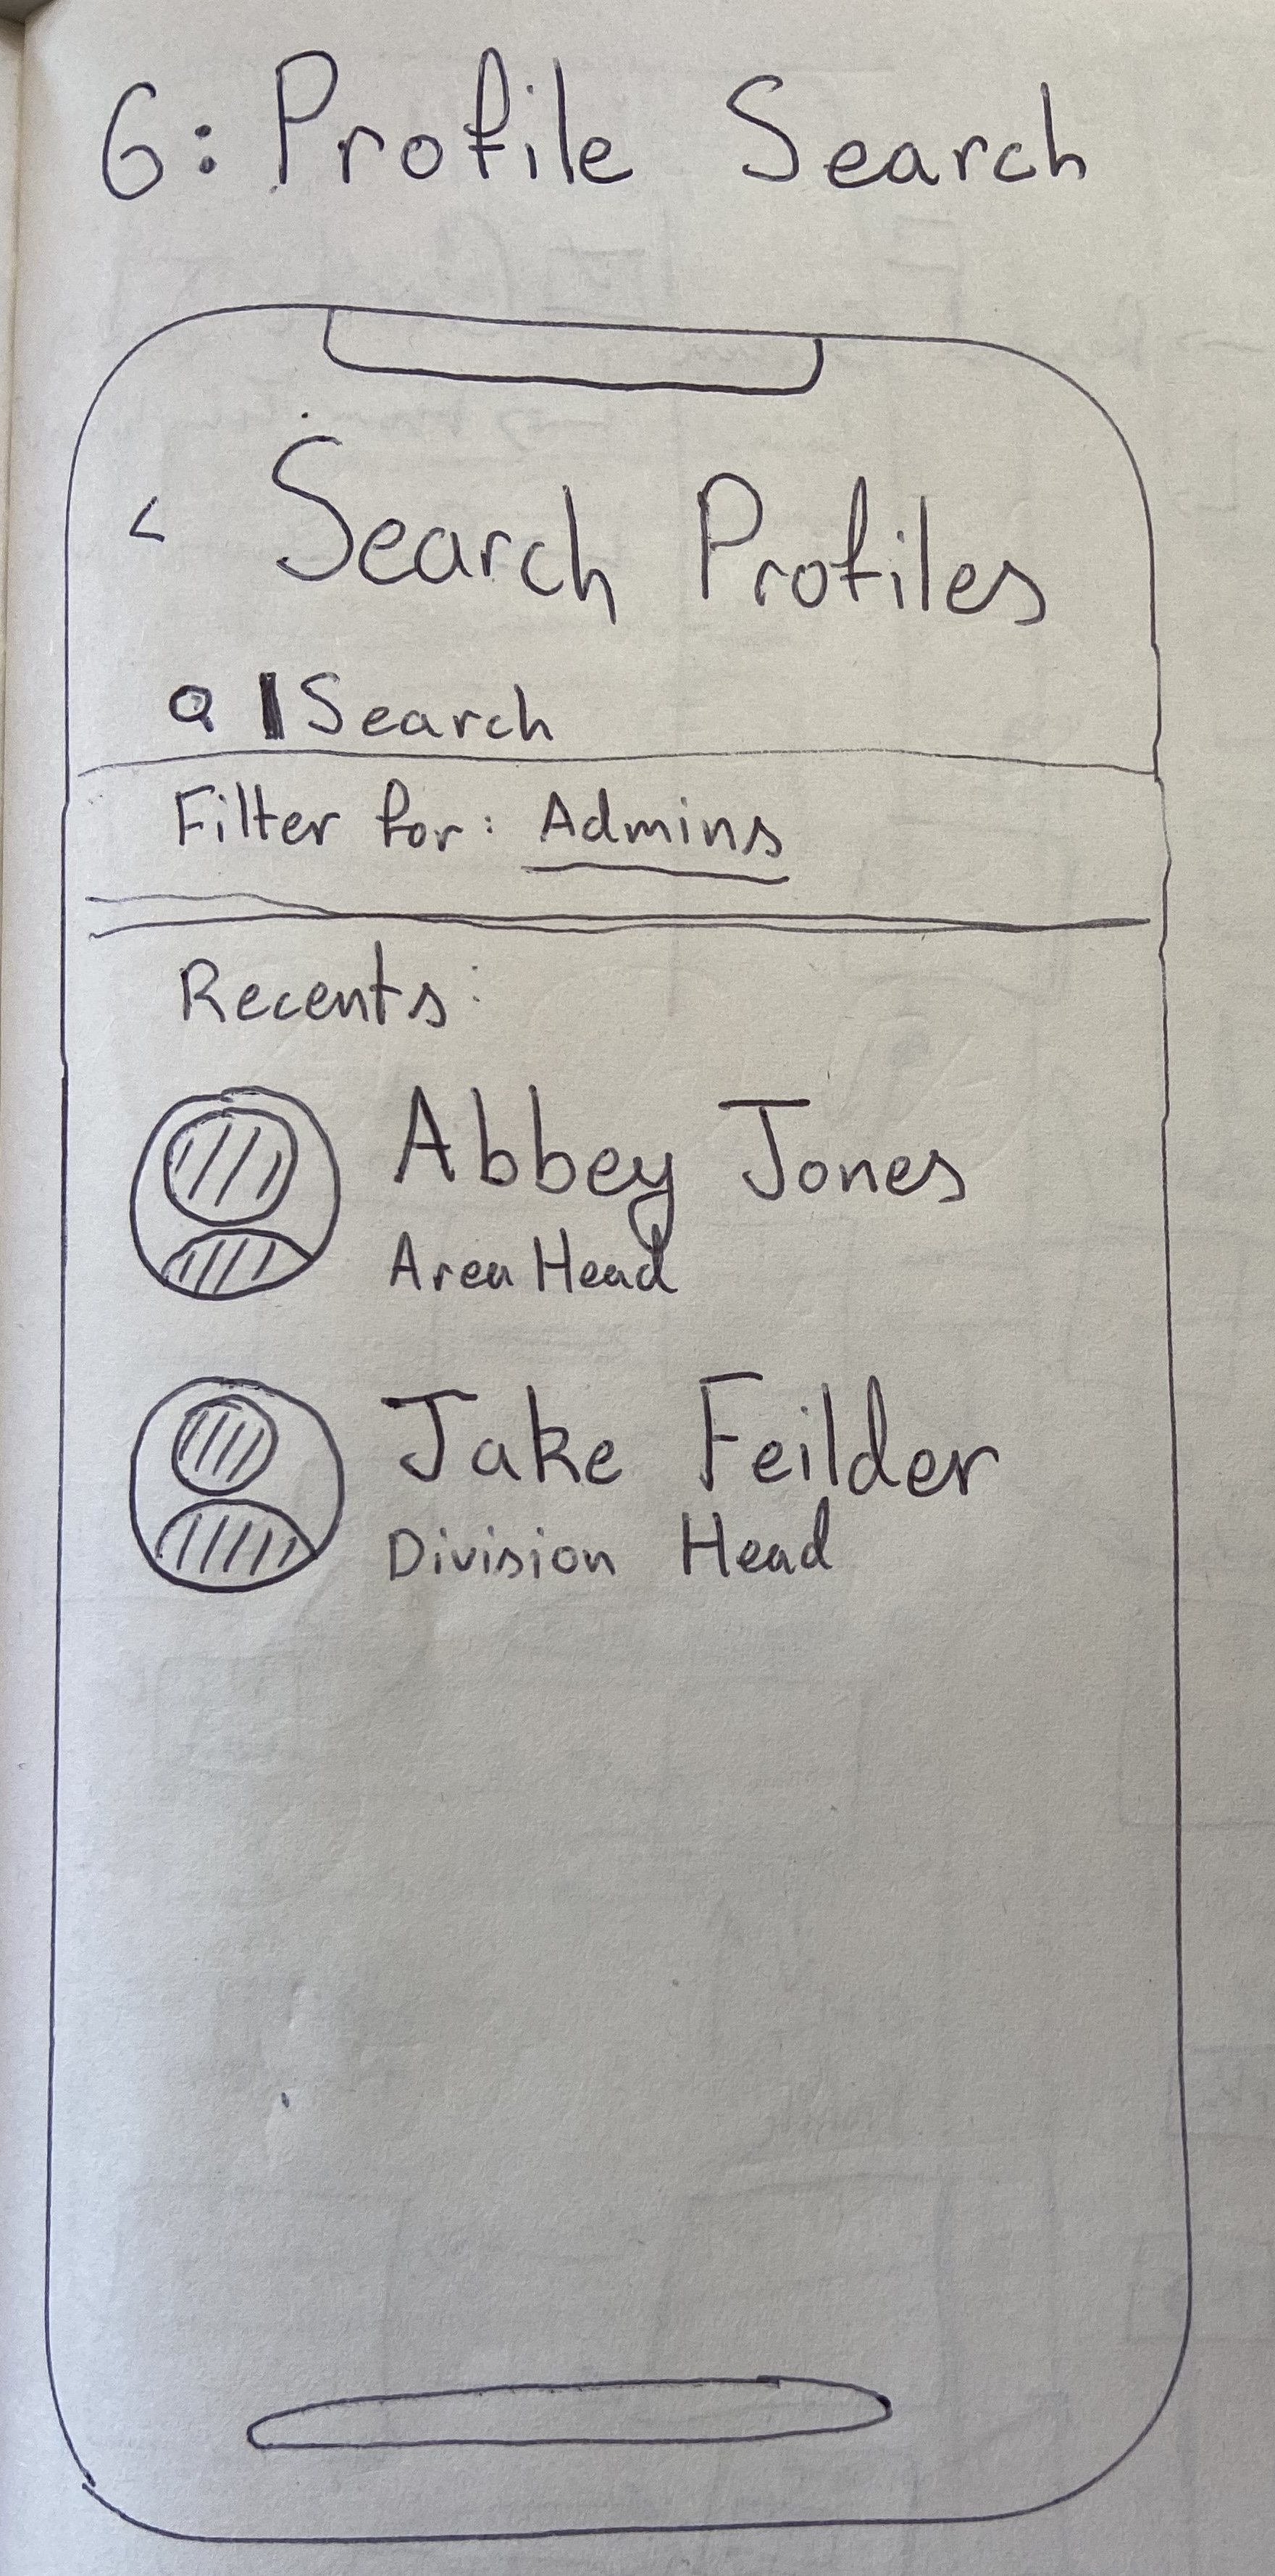 6: Profile Search
< Search Profiles
Search
Filter for: Admins
Recents:
Abbey Jones
Area Head
Jake Feilder
Division Head